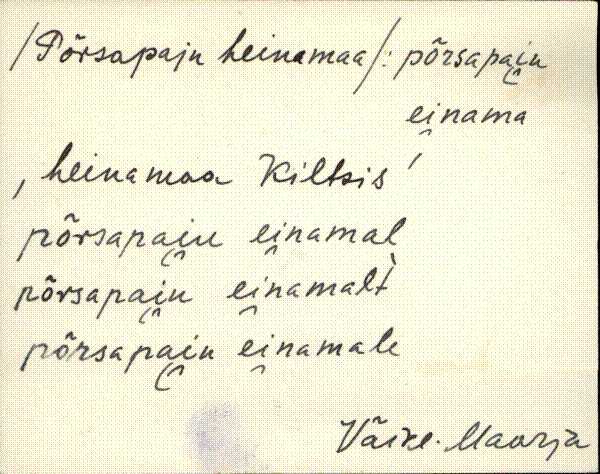 /Põrsapaju heinamaa/: põrsapai̯u
ei̯nama
, heinamaa Kiltsis'
põrsapai̯u ei̯namal
põrsapai̯u ei̯namal̀t
põrsapai̯u ei̯namale
Väike-Maarja